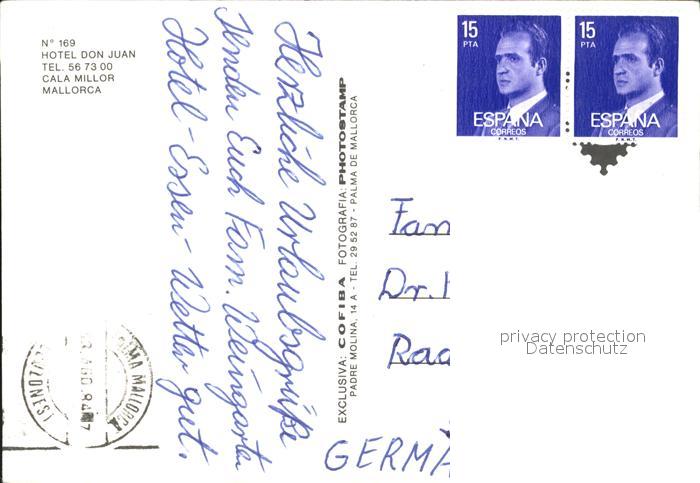 N° 169
HOTEL DON JUAN
TEL. 56 73 00
CALA MILLOR
MALLORCA
Herzliche Urlaubsgrüße
senden Euch Fam. Weingarten
Hotel - Essen - Wetter gut.
EXCLUSIVA: COFIBA FOTOGRAFIA: PHOTOSTAMP
PADRE MOLINA, 14 A - TEL. 29 52 87 - PALMA DE MALLORCA
15
PTA
ESPAÑA
CORREOS
F.N.M.T.
15
PTA
ESPAÑA
CORREOS
F.N.M.T.
Fam
Dr.
GERMA
privacy protection
Datenschutz
MALLORCA
AGO. 84